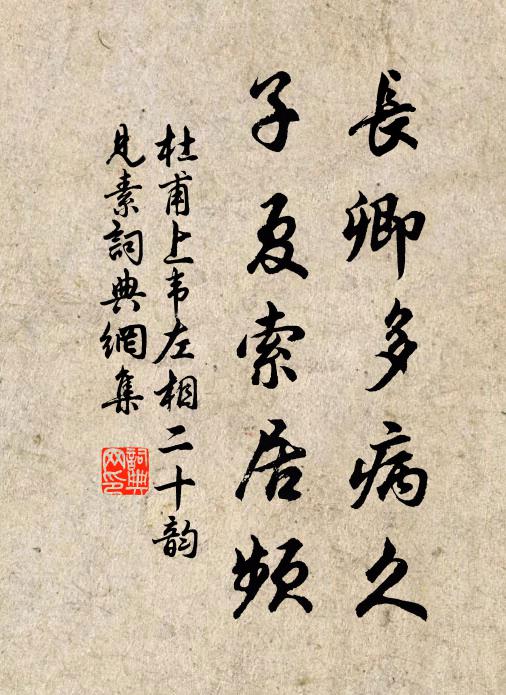 長卿多病久
子夏索居頻
杜甫上韦左相二十韵
見素詞典網集
詞典网印